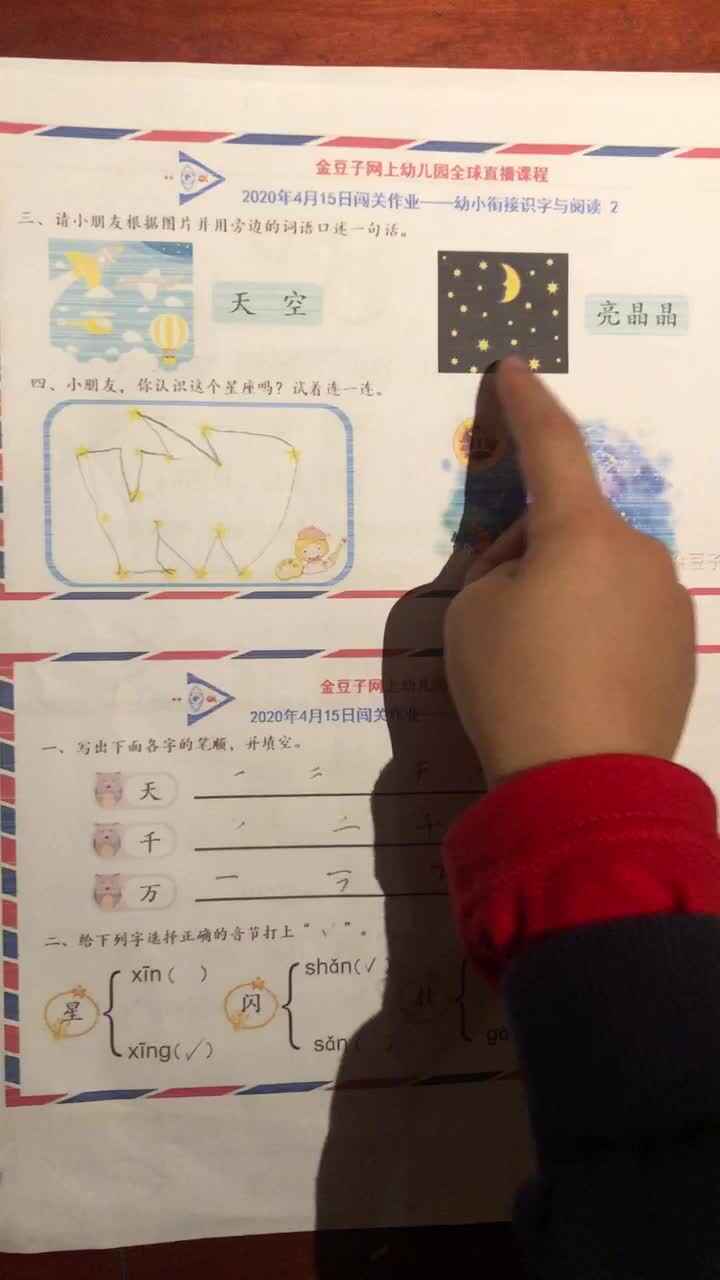 金豆子网上幼儿园全球直播课程
2020年4月15日闯关作业——幼小衔接识字与阅读 2
三、请小朋友根据图片并用旁边的词语口述一句话。
天 空
亮晶晶
四、小朋友,你认识这个星座吗?试着连一连。
豆子
金豆子网上幼儿
2020年4月15日闯关作业—
一、写出下面各字的笔顺,并填空。
天
千
万
二、给下列字选择正确的音节打上“√”。
星 xīn( ) xīng(√)
闪 shǎn(√) sǎn(